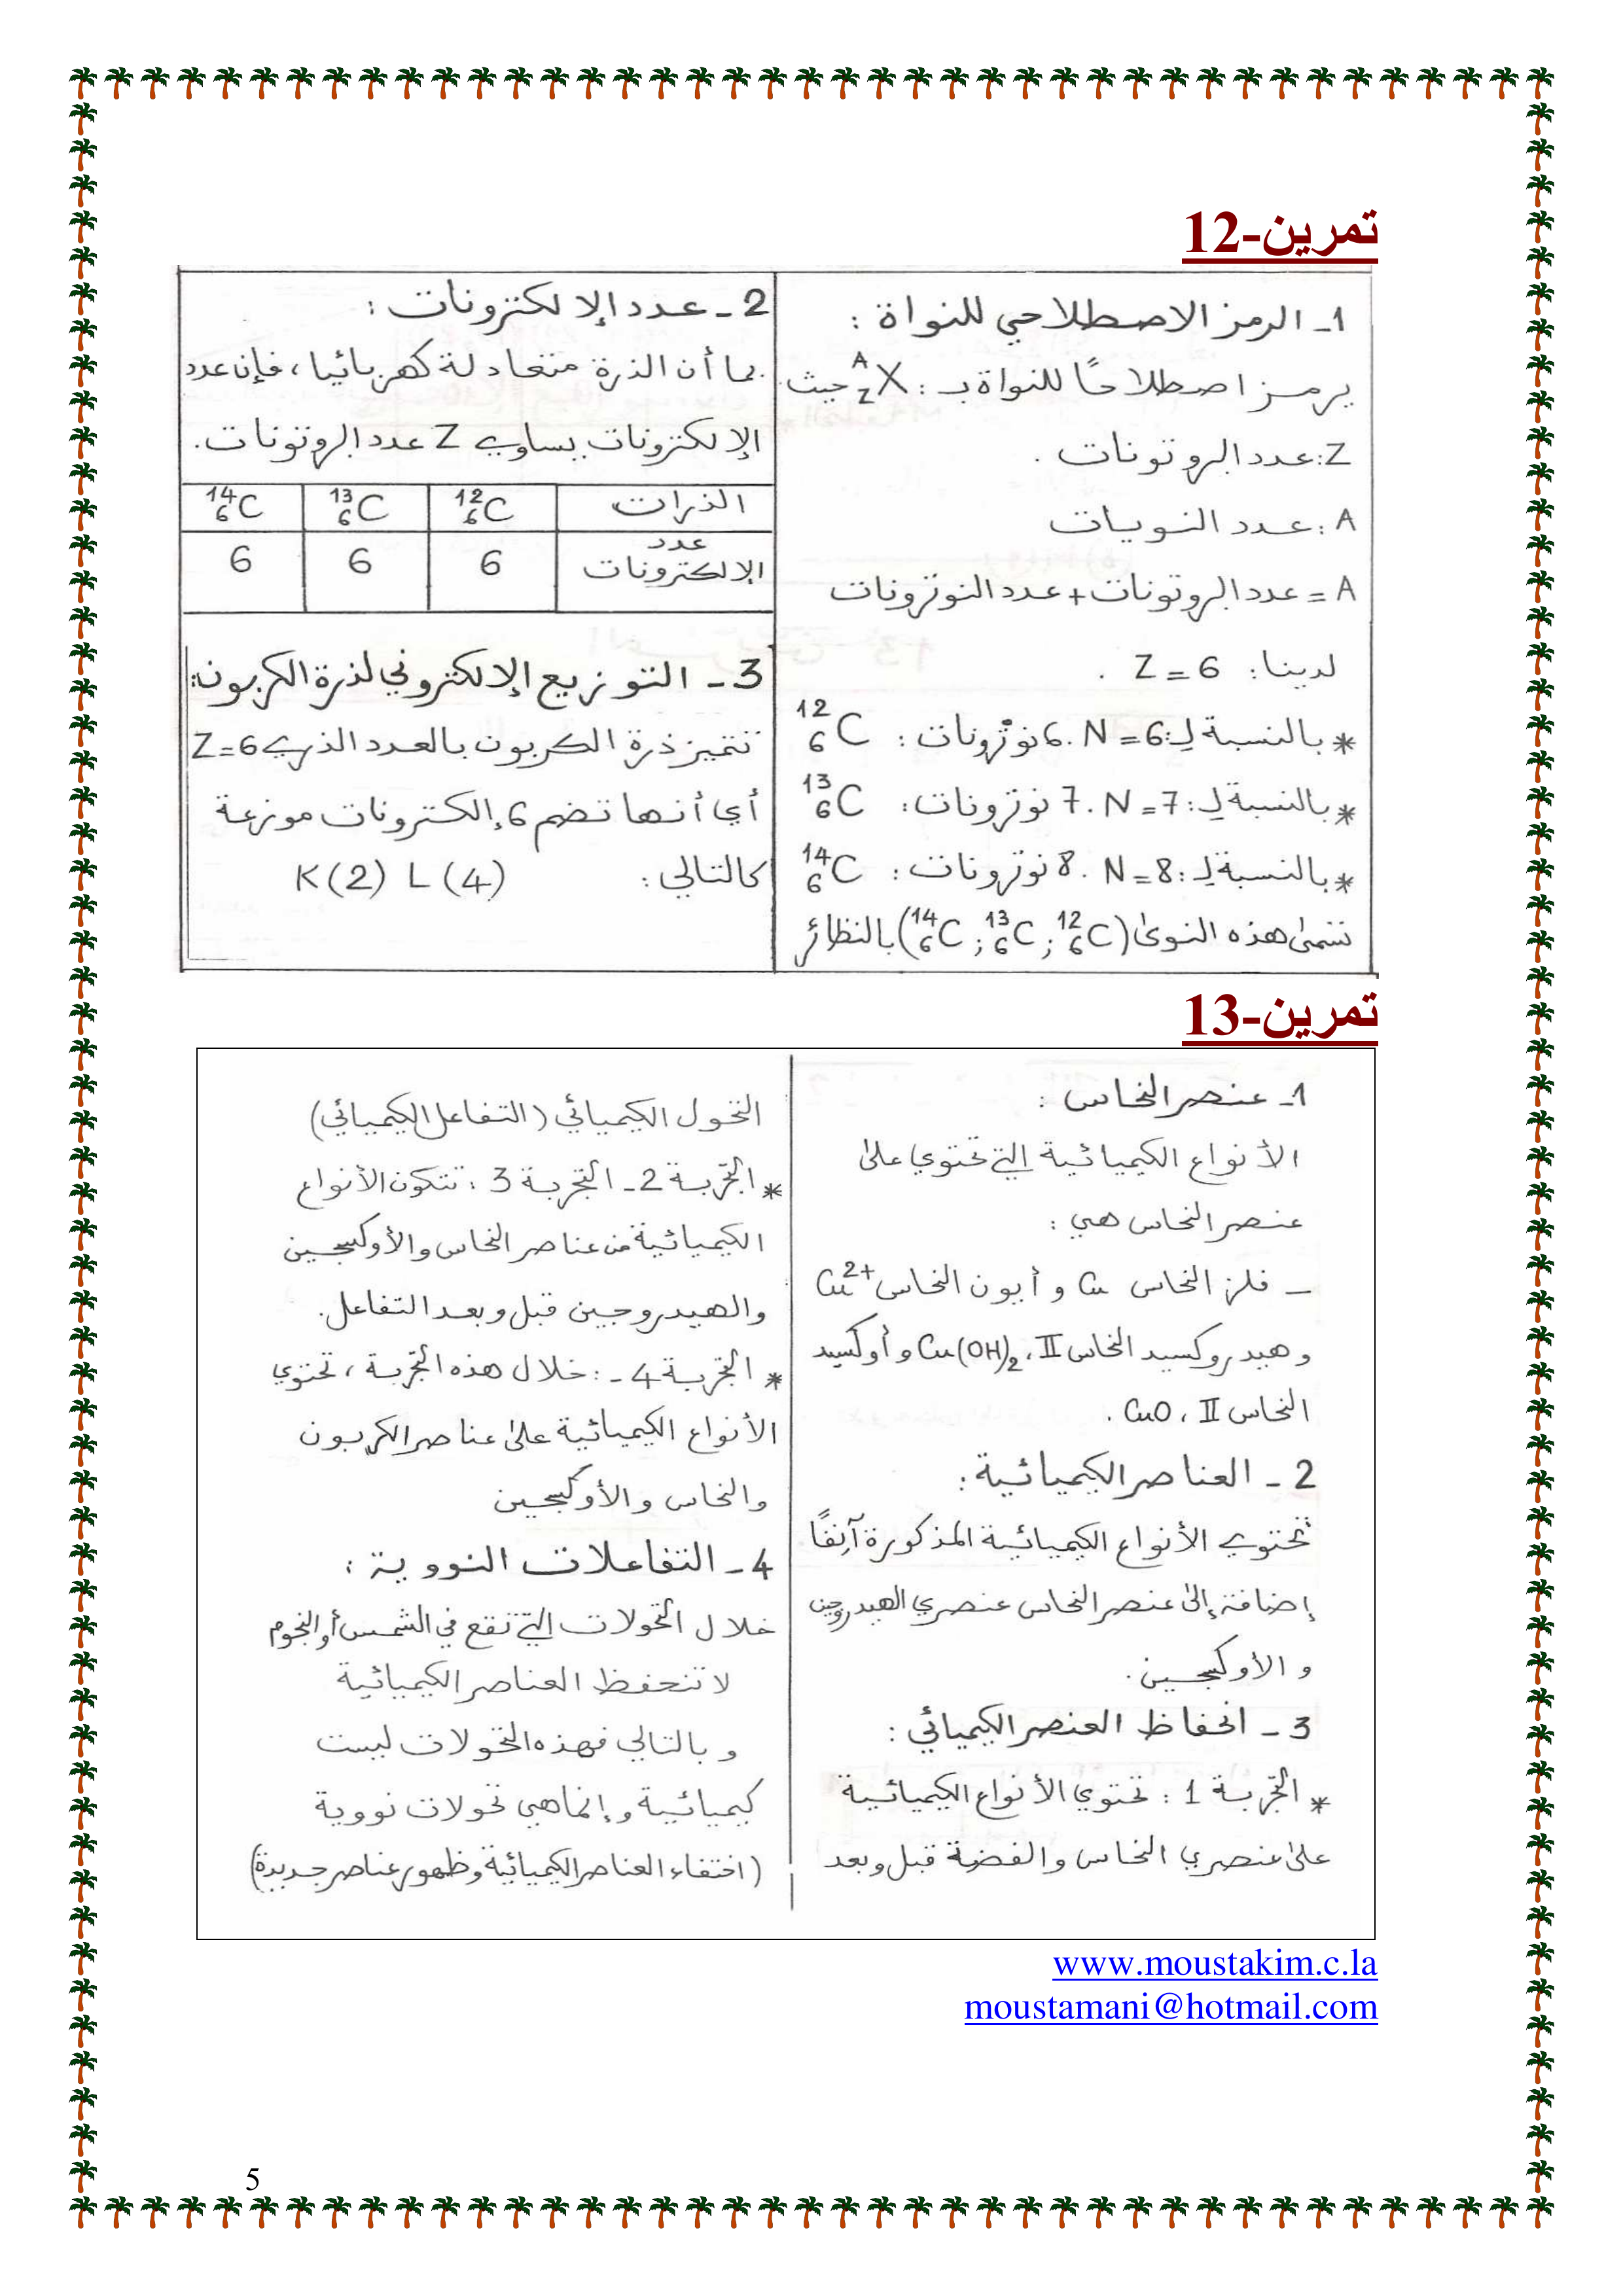 تمرين-12
1- الرمز الاصطلاحي للنواة :
يرمز اصطلاحًا للنواة بـ : ᴬ_ZX حيث
Z: عدد البروتونات .
A : عدد النويات
A = عدد البروتونات + عدد النوترونات
لدينا : Z = 6 .
* بالنسبة لِ: N = 6 . 6 نوترونات : ¹²₆C
* بالنسبة لِ: N = 7 . 7 نوترونات : ¹³₆C
* بالنسبة لِ: N = 8 . 8 نوترونات : ¹⁴₆C
تسمى هذه النوى (¹²₆C ; ¹³₆C ; ¹⁴₆C) بالنظائر
2 - عدد الإلكترونات :
بما أن الذرة متعادلة كهربائيا ، فإن عدد
الإلكترونات يساوي Z عدد البروتونات .
الذرات ¹²₆C ¹³₆C ¹⁴₆C
عدد
الإلكترونات 6 6 6
3 - التوزيع الإلكتروني لذرة الكربون :
تتميز ذرة الكربون بالعدد الذري Z=6
أي أنها تضم 6 إلكترونات موزعة
كالتالي : K(2) L(4)
تمرين-13
1- عنصر النحاس :
الأنواع الكيميائية التي تحتوي على
عنصر النحاس هي :
– فلز النحاس Cu و أيون النحاس Cu²⁺
و هيدروكسيد النحاس II ، Cu(OH)₂ و أوكسيد
النحاس II ، CuO .
2 - العناصر الكيميائية :
تحتوي الأنواع الكيميائية المذكورة آنفًا
إضافة إلى عنصر النحاس عنصري الهيدروجين
و الأوكسجين .
3 - انحفاظ العنصر الكيميائي :
* التجربة 1 : تحتوي الأنواع الكيميائية
على عنصري النحاس والفضة قبل وبعد
التحول الكيميائي (التفاعل الكيميائي)
* التجربة 2 - التجربة 3 : تتكون الأنواع
الكيميائية من عناصر النحاس والأوكسجين
والهيدروجين قبل وبعد التفاعل .
* التجربة 4 - : خلال هذه التجربة ، تحتوي
الأنواع الكيميائية على عناصر الكربون
والنحاس والأوكسجين
4 - التفاعلات النووية :
خلال التحولات التي تقع في الشمس أو النجوم
لا تنحفظ العناصر الكيميائية
و بالتالي فهذه التحولات ليست
كيميائية وإنما هي تحولات نووية
(اختفاء العناصر الكيميائية وظهور عناصر جديدة)
www.moustakim.c.la
moustamani@hotmail.com
5